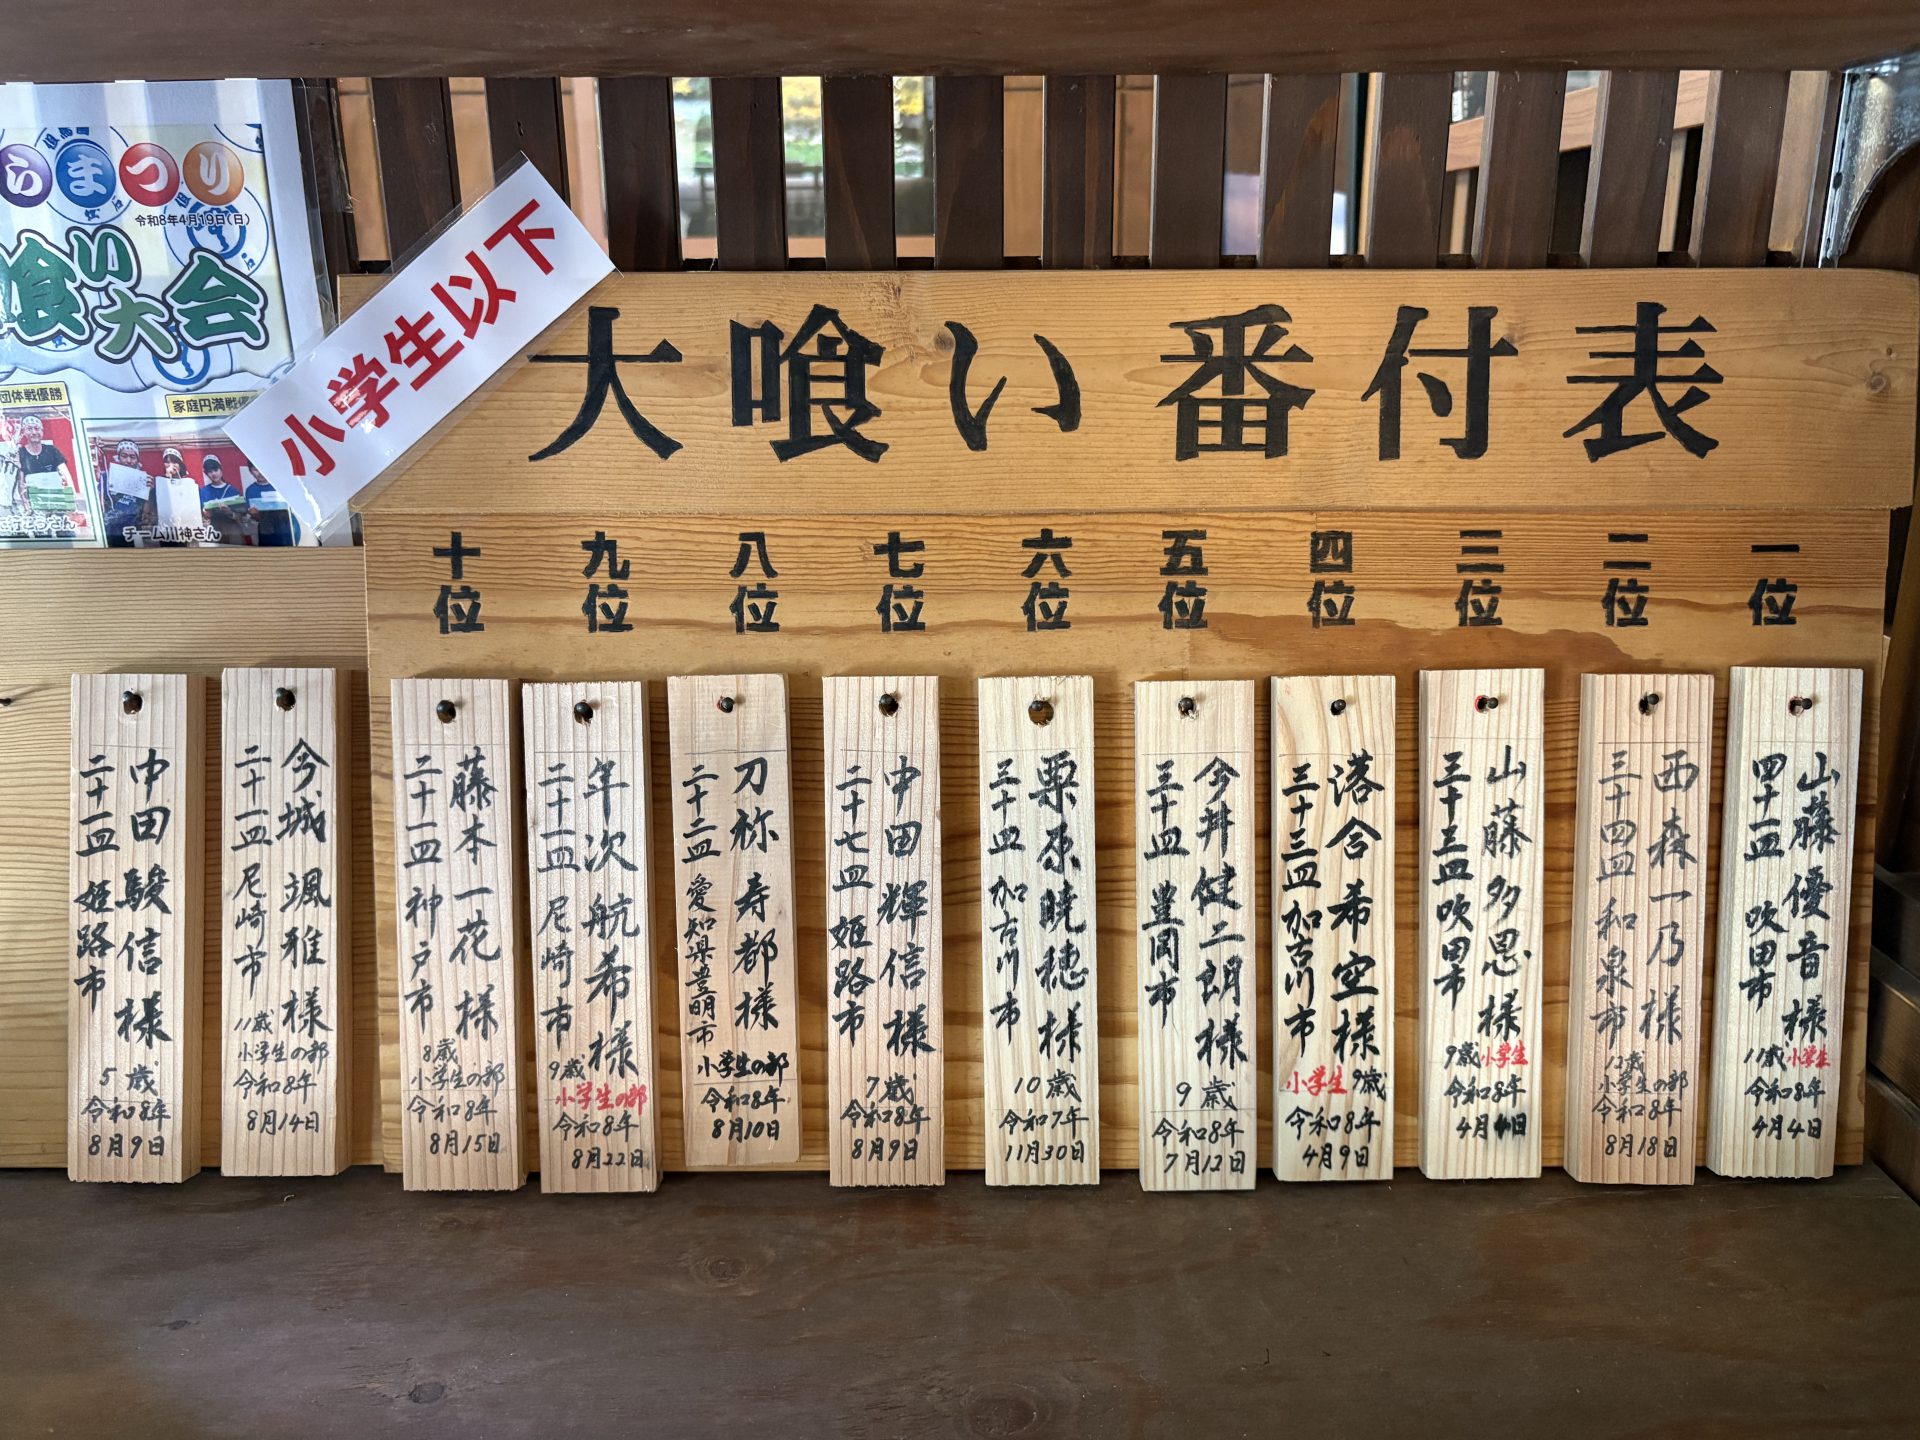 らまつり
令和8年4月19日(日)
喰い
大会
団体戦優勝
家庭円満戦優
チーム川神さん
小学生以下
大喰い番付表
一位
二位
三位
四位
五位
六位
七位
八位
九位
十位
山藤優音様
四十一皿 吹田市
11歳 小学生
令和8年
4月4日
西森一乃様
三十四皿 和泉市
12歳
小学生の部
令和8年
8月18日
山藤多恩様
三十三皿 吹田市
9歳 小学生
令和8年
4月4日
落合希空様
三十三皿 加古川市
小学生 9歳
令和8年
4月9日
今井健二朗様
三十皿 豊岡市
9歳
令和8年
7月12日
栗原暁穂様
三十皿 加古川市
10歳
令和7年
11月30日
中田輝信様
二十七皿 姫路市
7歳
令和8年
8月9日
刀祢寿都様
二十二皿 愛知県豊明市
小学生の部
令和8年
8月10日
年次航希様
二十一皿 尼崎市
9歳
小学生の部
令和8年
8月22日
藤本一花様
二十一皿 神戸市
8歳
小学生の部
令和8年
8月15日
今城颯雅様
二十一皿 尼崎市
11歳
小学生の部
令和8年
8月14日
中田駿信様
二十一皿 姫路市
5歳
令和8年
8月9日